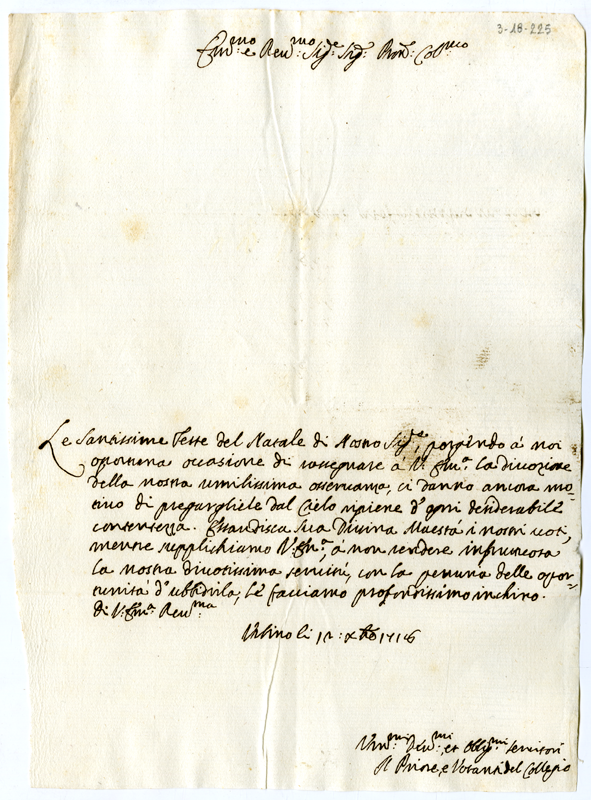 3-18-225
Em:mo e Reu:mo Sig:e Sig: Pron: Col:mo
Le Santissime Feste del Natale di Nostro Sig:e, porgendo á noi
opportuna occasione di rassegnare á V: Em:a la diuozione
della nostra umilissima osseruanza, ci danno ancora mo-
tiuo di pregargliele dal Cielo ripiene d'ogni desiderabile
contentezza. Esaudisca Sua Diuina Maestá i nostri uoti,
mentre supplichiamo V: Em:a, á non rendere infruttuosa
la nostra diuotissima seruitú, con la penuria delle oppor-
tunitá d'ubbidirla; le facciamo profondissimo inchino.
di V: Em:a Reu:ma
Urbino li 12: Xbre 1716
Um:mi Deu:mi, et Obbg:mi Seruitori
Il Priore, e Votanti del Collegio